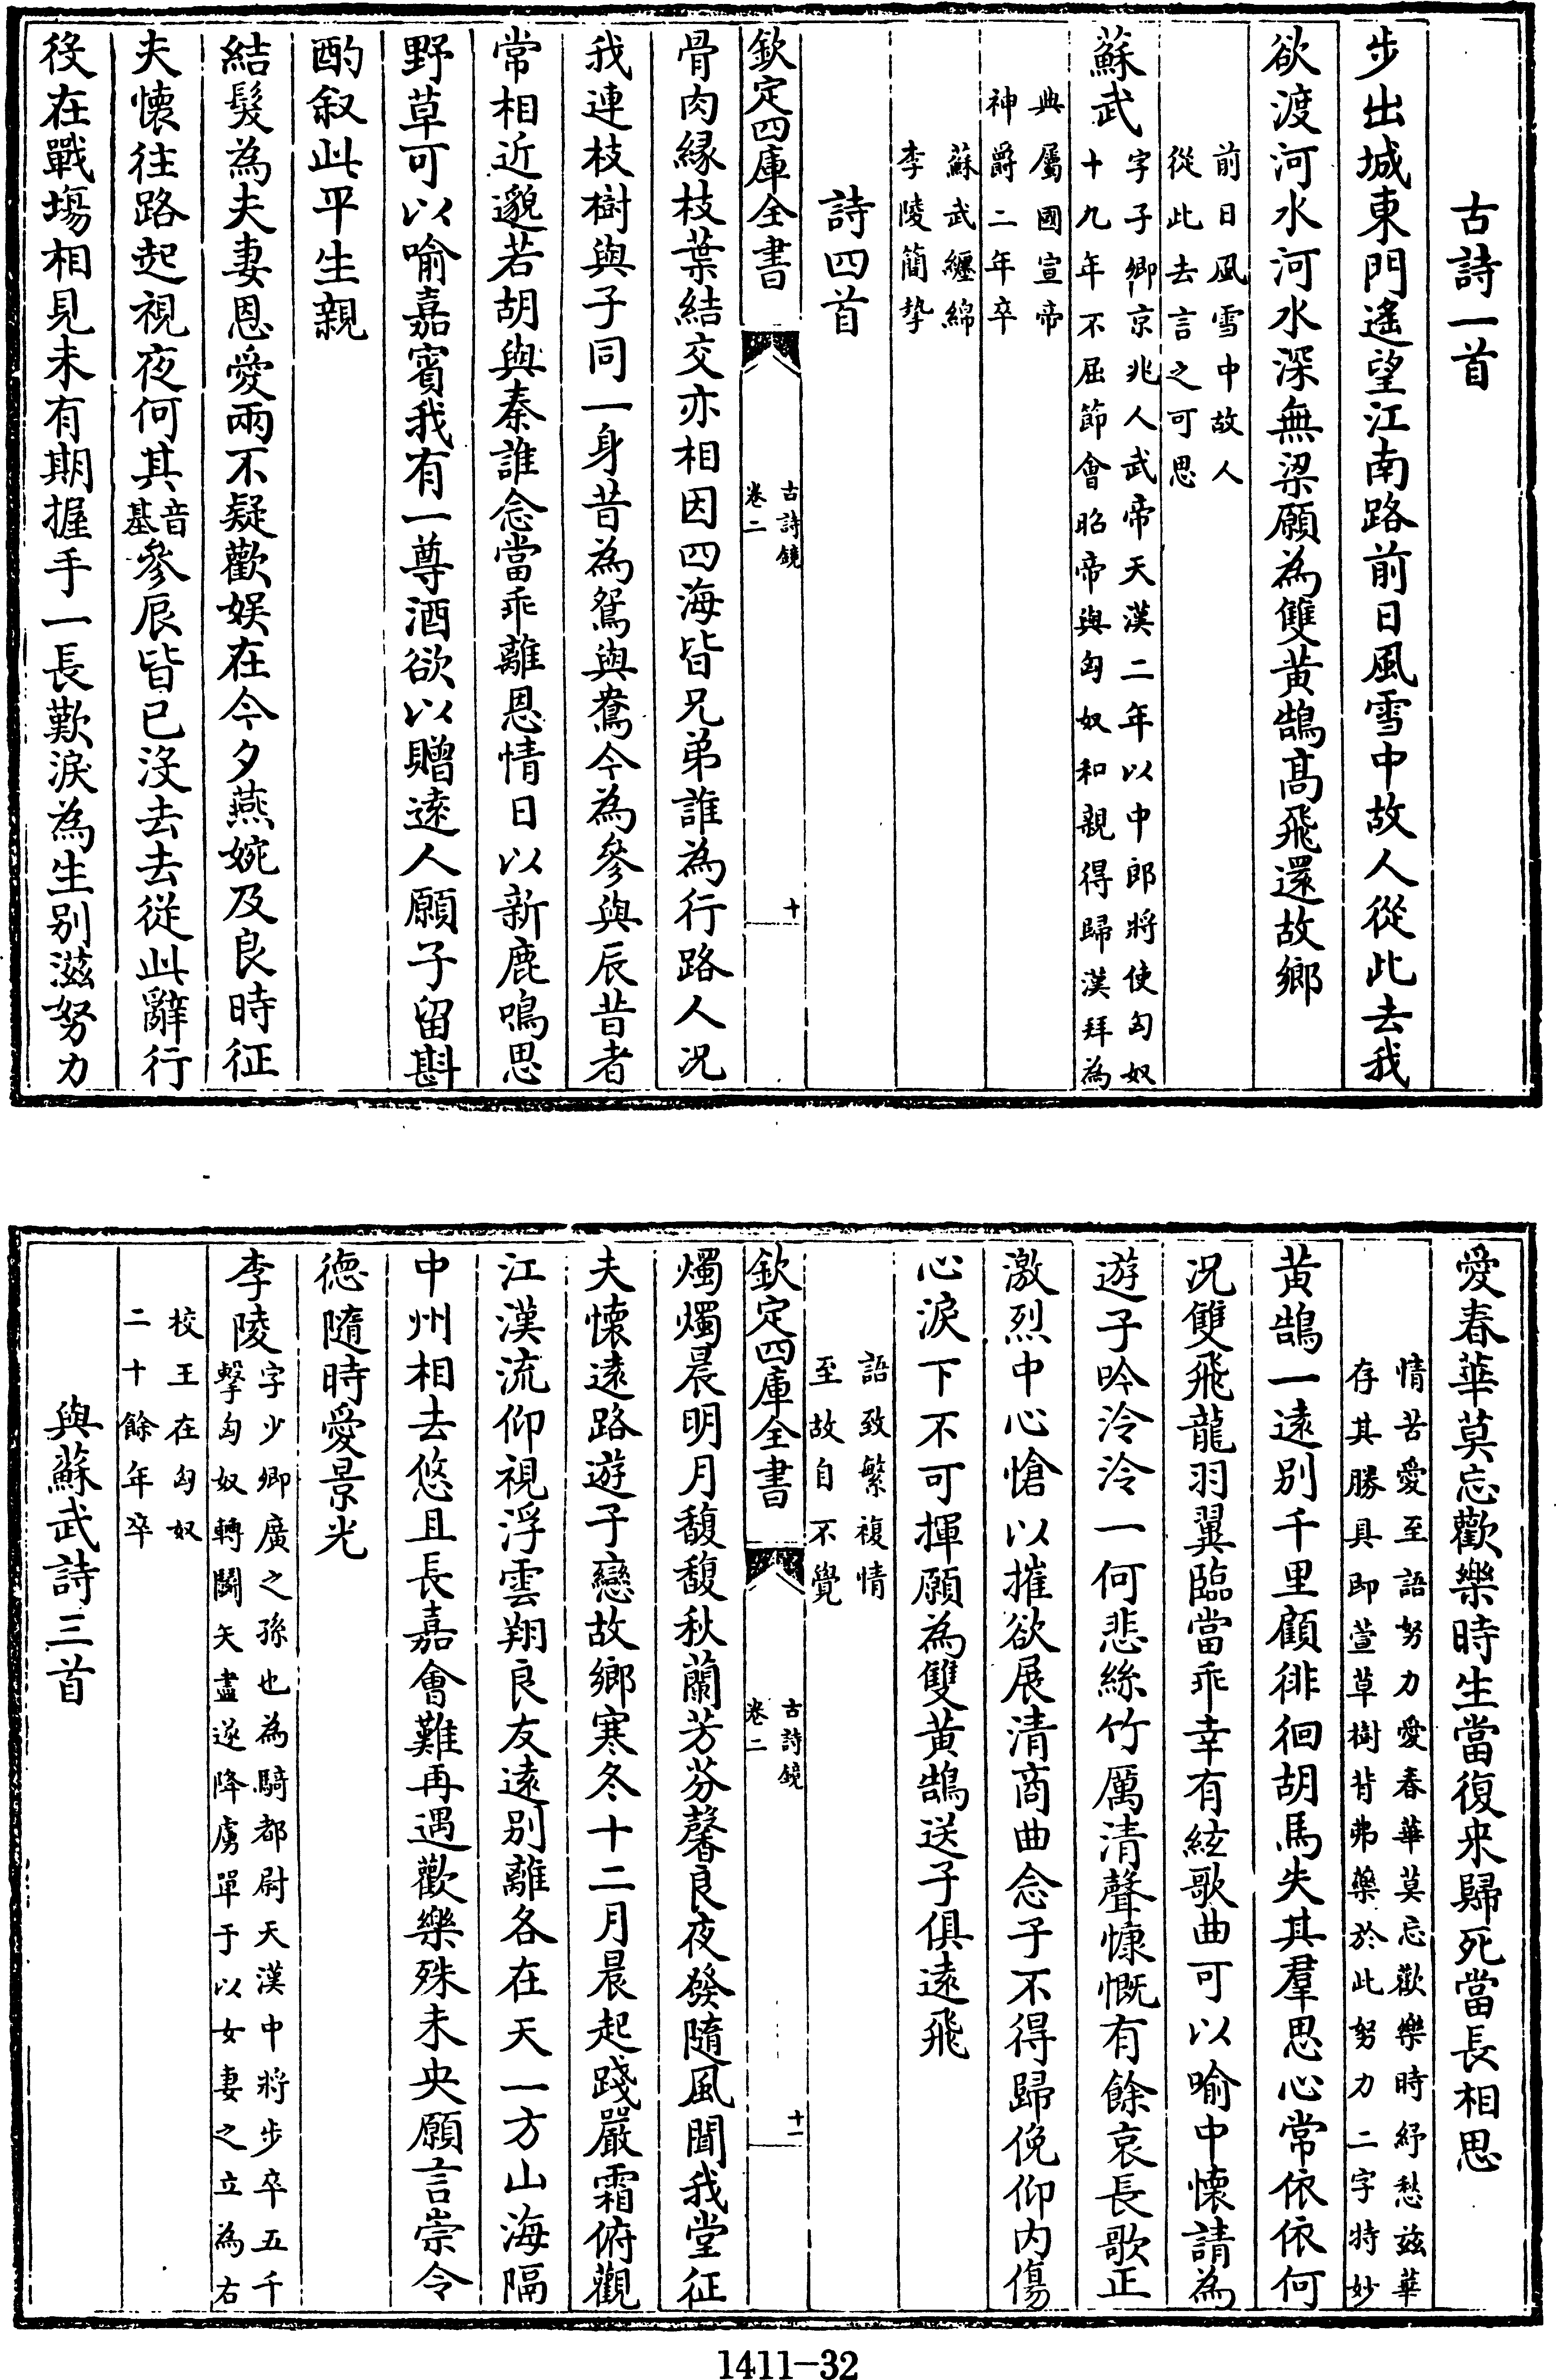 古詩一首
步出城東門遙望江南路前日風雪中故人從此去我
欲渡河水河水深無梁願為雙黃鵠髙飛還故鄉
前日風雪中故人
從此去言之可思
蘇武
字子卿京兆人武帝天漢二年以中郎將使匈奴
十九年不屈節會昭帝與匈奴和親得歸漢拜為
典屬國宣帝
神爵二年卒
蘇武纏綿
李陵簡摯
詩四首
欽定四庫全書
古詩鏡
卷二
十
骨肉緣枝葉結交亦相因四海皆兄弟誰為行路人况
我連枝樹與子同一身昔為鴛與鴦今為參與辰昔者
常相近邈若胡與秦誰念當乖離恩情日以新鹿鳴思
野草可以喻嘉賓我有一尊酒欲以贈逺人願子留斟
酌叙此平生親
結髮為夫妻恩愛兩不疑歡娯在今夕燕婉及良時征
夫懷往路起視夜何其
音
基
參辰皆已沒去去從此辭行
役在戰塲相見未有期握手一長歎淚為生别滋努力
愛春華莫忘歡樂時生當復來歸死當長相思
情苦愛至語努力愛春華莫忘歡樂時紓愁兹華
存其勝具即萱草樹背弗藥於此努力二字特妙
黃鵠一逺别千里顧徘徊胡馬失其羣思心常依依何
况雙飛龍羽翼臨當乖幸有絃歌曲可以喻中懷請為
遊子吟泠泠一何悲絲竹厲清聲慷慨有餘哀長歌正
激烈中心愴以摧欲展清商曲念子不得歸俛仰内傷
心淚下不可揮願為雙黃鵠送子俱逺飛
語致繁複情
至故自不覺
欽定四庫全書
古詩鏡
卷二
十一
燭燭晨明月馥馥秋蘭芳芬馨良夜發隨風聞我堂征
夫懷逺路遊子戀故鄉寒冬十二月晨起踐嚴霜俯觀
江漢流仰視浮雲翔良友逺别離各在天一方山海隔
中州相去悠且長嘉會難再遇歡樂殊未央願言崇令
徳隨時愛景光
李陵
字少卿廣之孫也為騎都尉天漢中將步卒五千
擊匈奴轉鬬矢盡遂降虜單于以女妻之立為右
校王在匈奴
二十餘年卒
與蘇武詩三首
1411-32